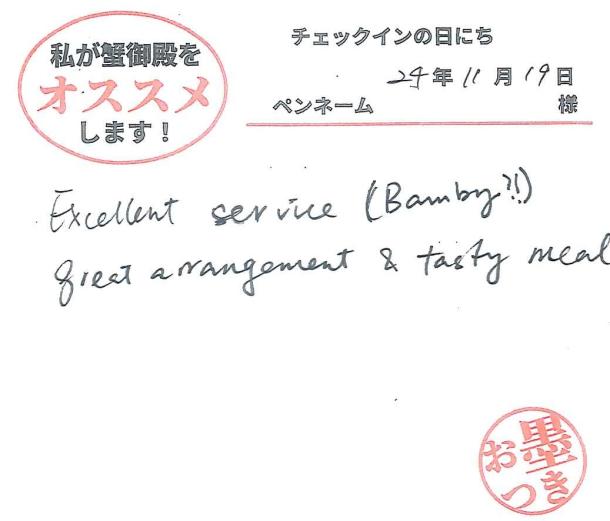 私が蟹御殿を
オススメ
します！
チェックインの日にち
24年11月19日
ペンネーム 様
Excellent service (Bamby?!)
great arrangement & tasty meal
お墨
つき